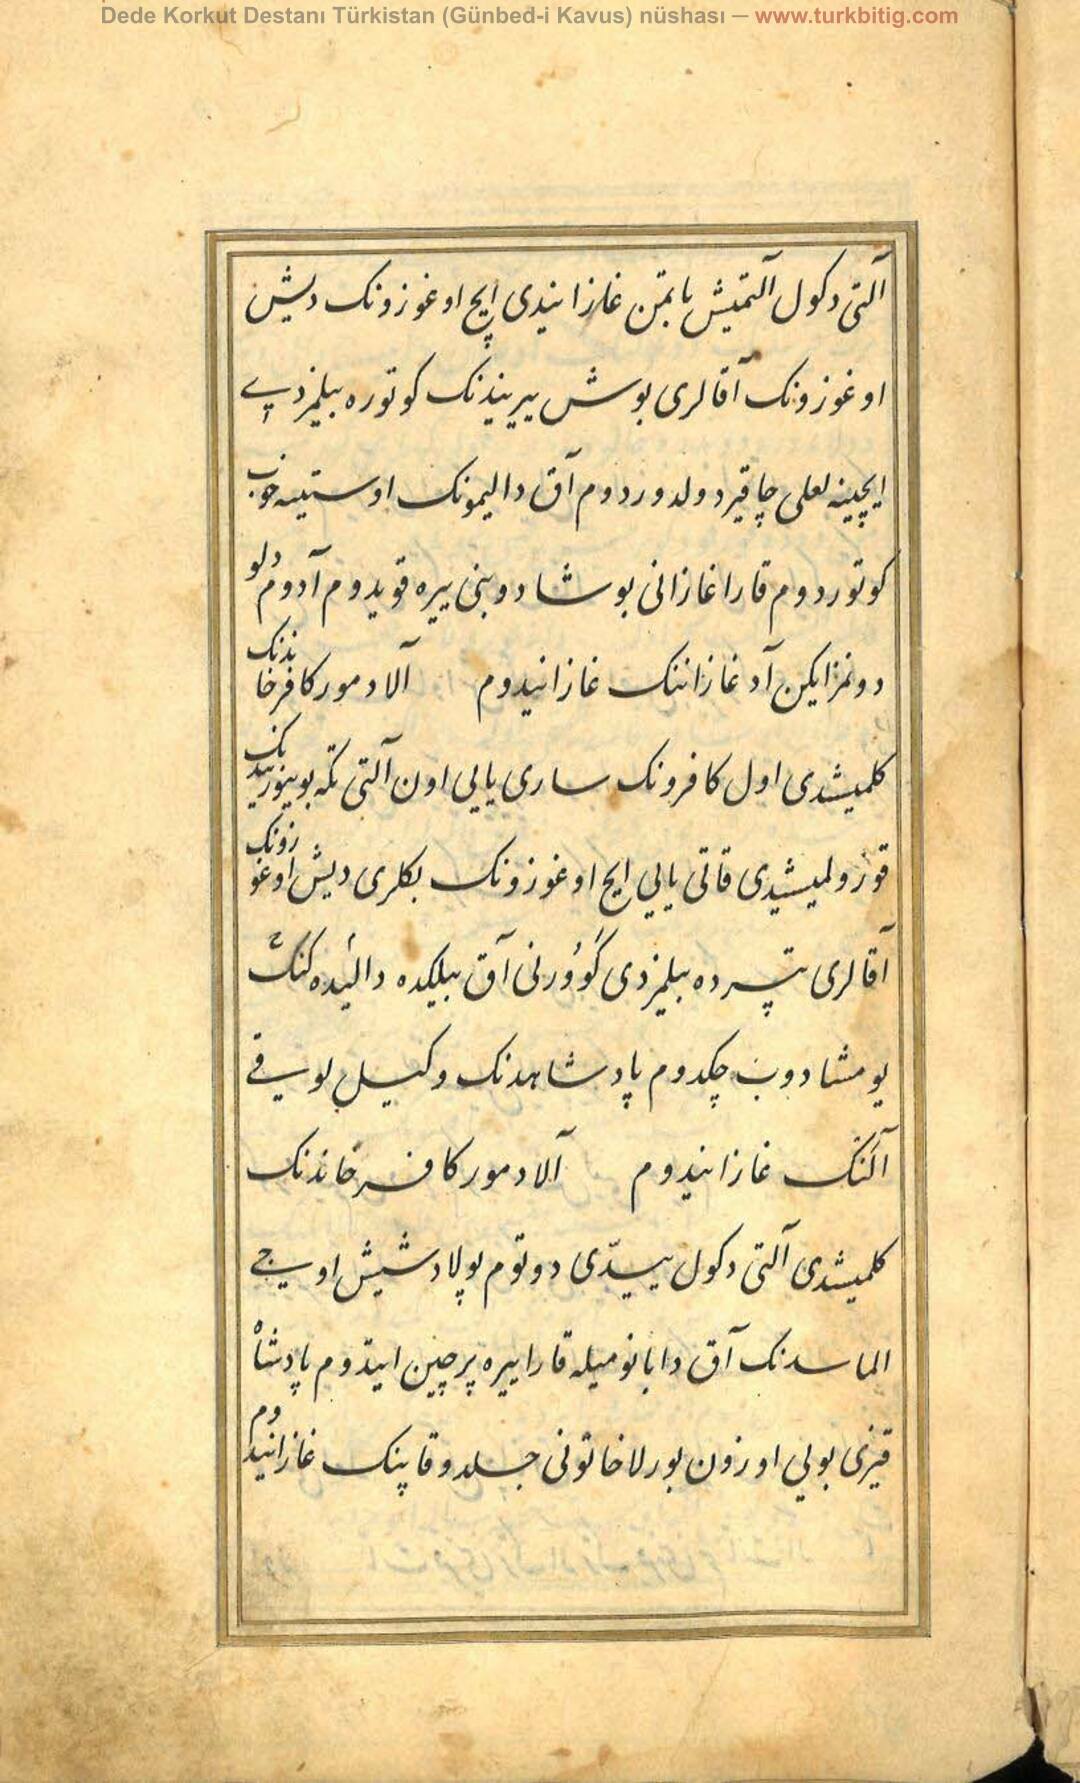 Dede Korkut Destanı Türkistan (Günbed-i Kavus) nüshası — www.turkbitig.com
آلتی دکول آلتمیش باتمن غازانیدی ایچ اوغوزونک دیش
اوغوزونک آقالری بوش یریندنک کوتوره بیلمزدی
ایچینه لعلی چاقیر دولدوردوم آق دالیمونک اوستینه خوب
کوتوردوم قارا غازانی بوشادوبنی ییره قویدوم آدوم دلو
دونمز ایکن آد غازاننک غازانیدوم آلادمور کافر خاندنک
کلمیشدی اول کافرونک ساری یایی اون آلتی تکه بوینوزیندنک
قوزولمیشیدی قاتی یایی ایچ اوغوزونک بکلری دیش اوغوزونک
آقالری تپرده بیلمزدی گوورنی آق بیلیکده دالیده کنک
یومشادوب چکدوم پادشاهدنک وکیللوقی
آلنک غازانیدوم آلادمور کافر خاندنک
کلمیشدی آلتی دکول ییدّی دوتوم پولاد شیش اویجی
الماسدنک آق دابانومیله قارا ییره پرچین ایتدوم پادشاه
قیزی بویی اوزون بورلا خاتونی جلدو قاپنک غازانیدوم